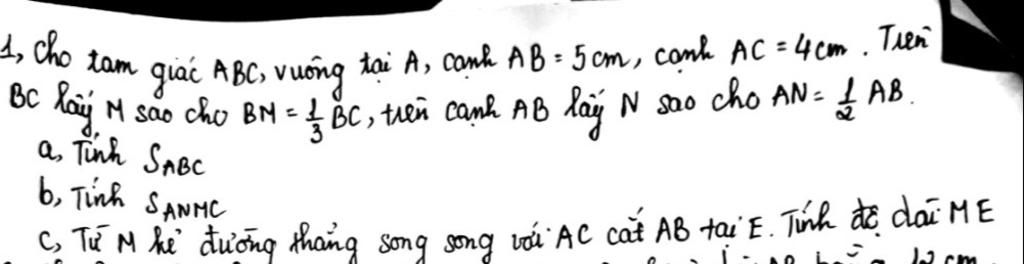 1, Cho tam giác ABC, vuông tại A, cạnh AB = 5cm, cạnh AC = 4cm. Trên
BC lấy M sao cho BM = 1/3 BC, trên cạnh AB lấy N sao cho AN = 1/2 AB.
a, Tính SABC
b, Tính SANMC
c, Từ M kẻ đường thẳng song song với AC cắt AB tại E. Tính độ dài ME